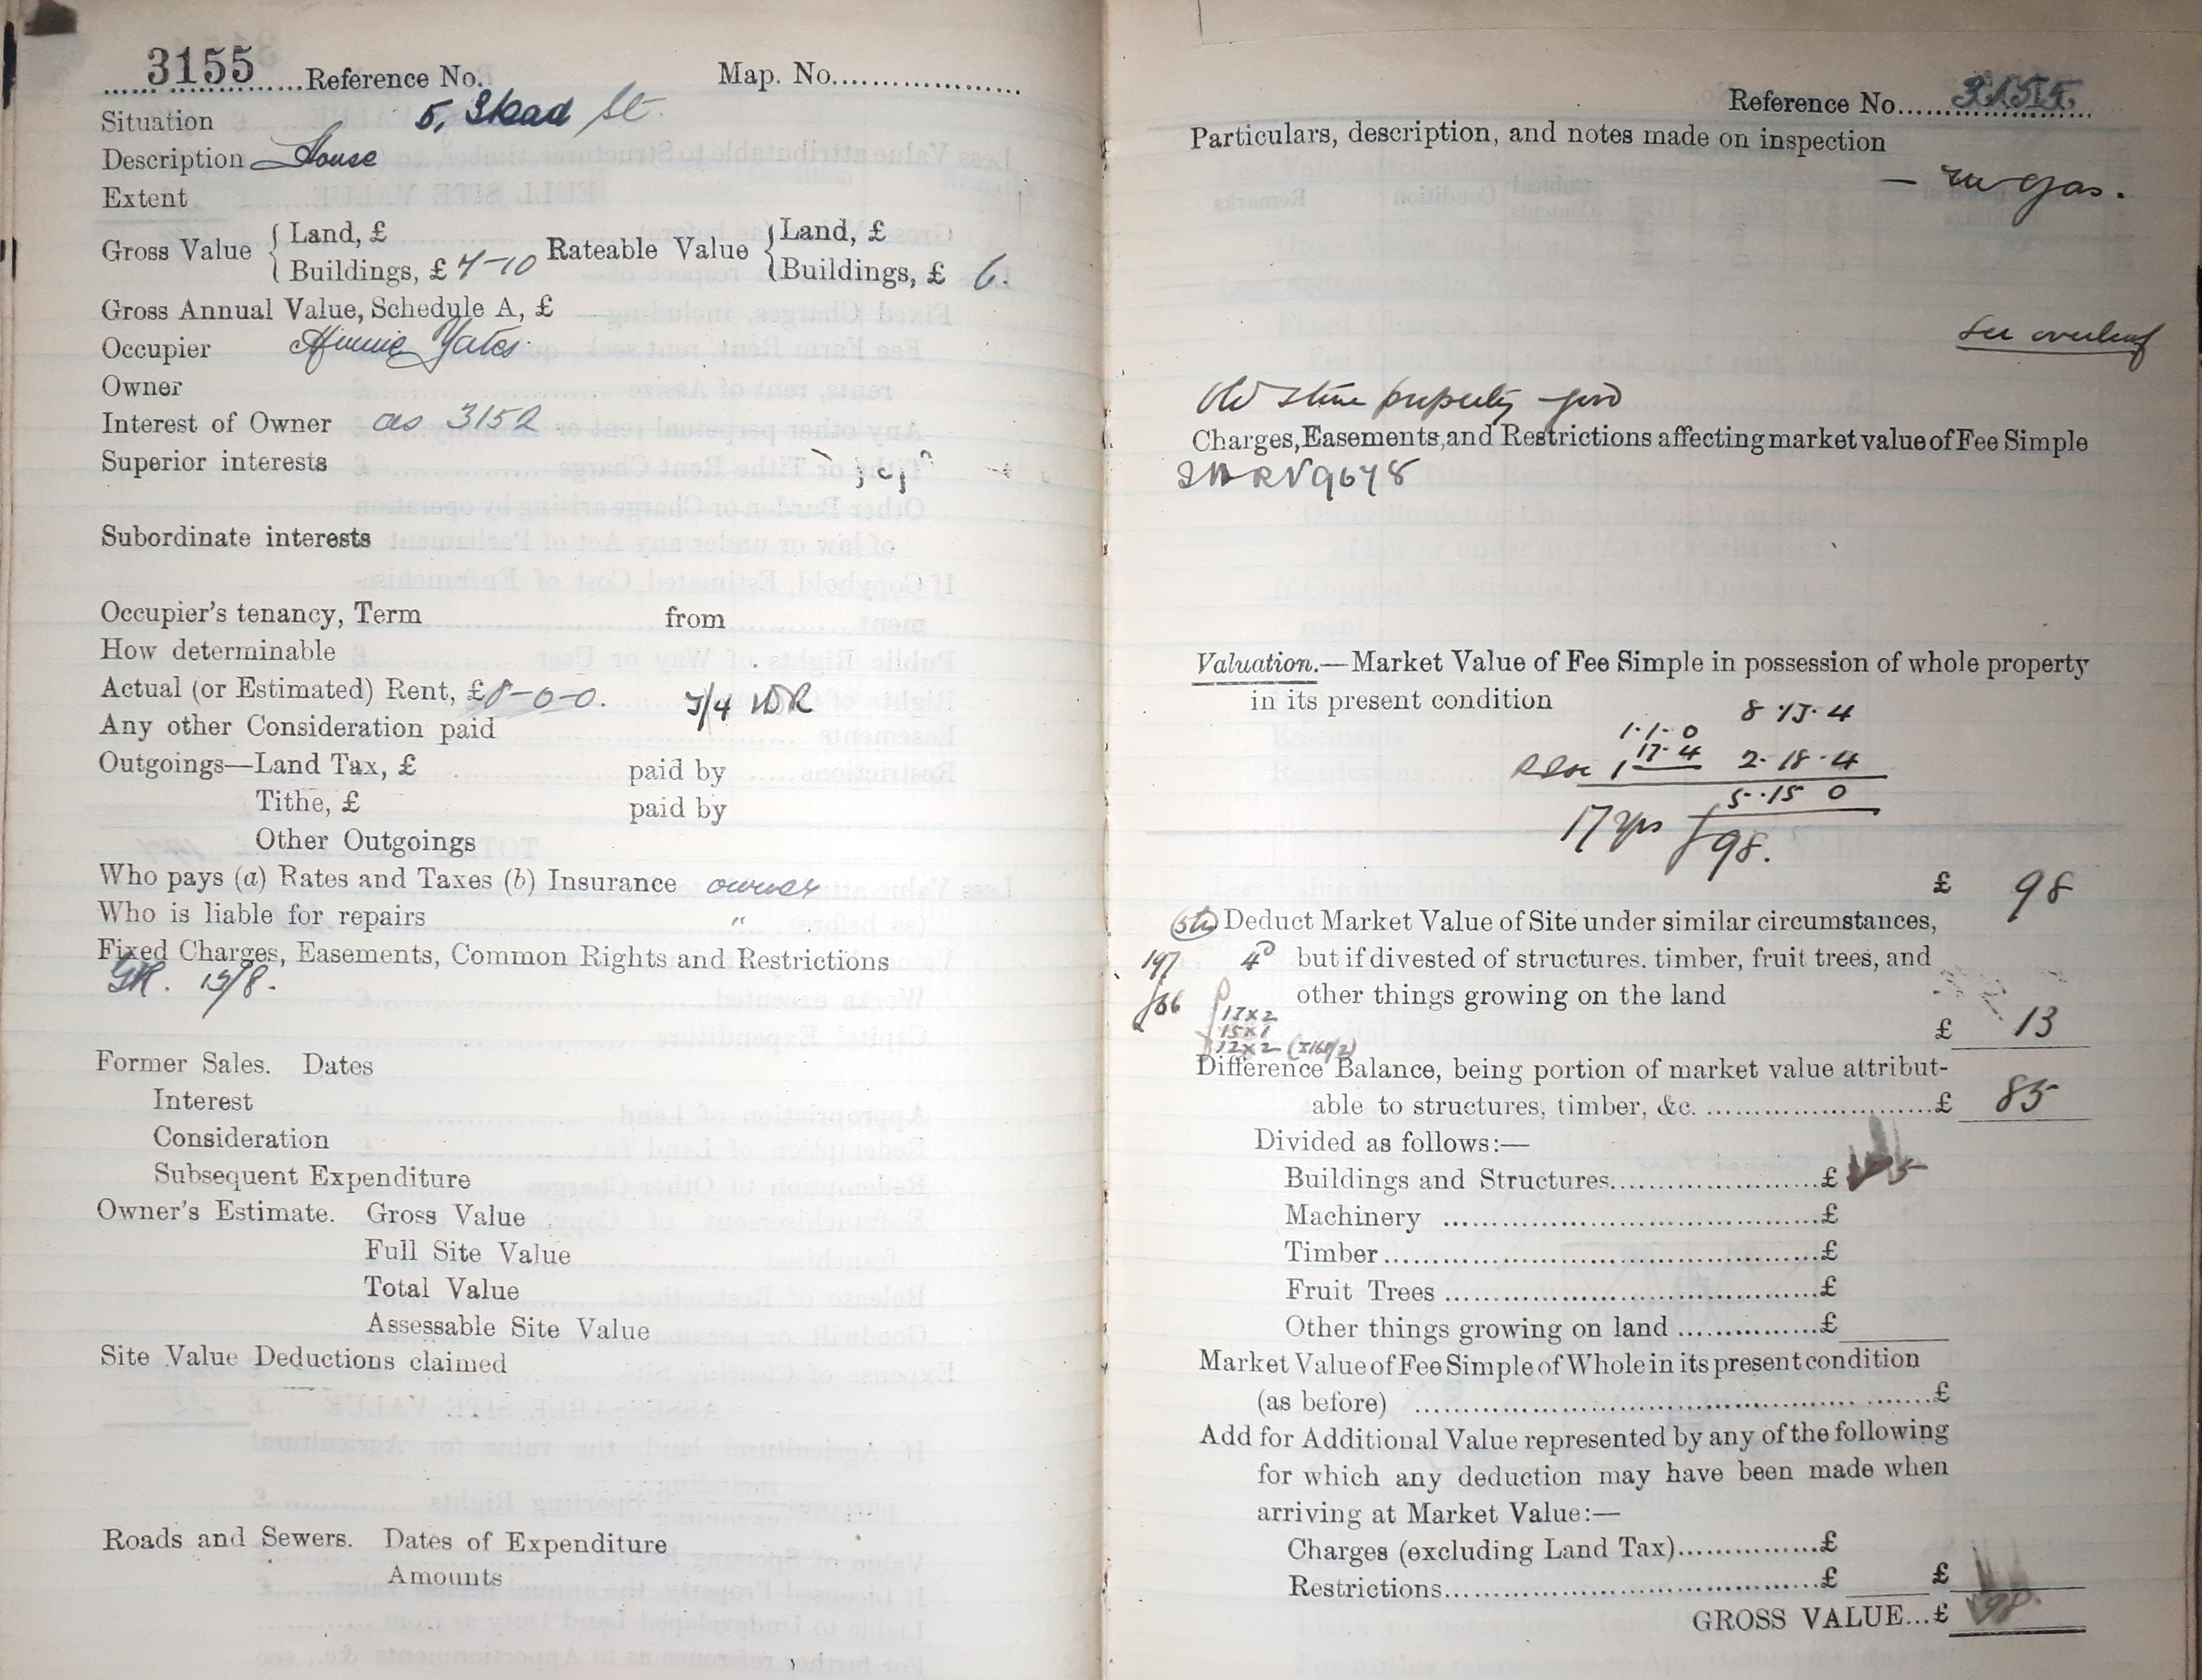 3155 Reference No. Map. No.
Situation 5, Skad St.
Description House
Extent
Gross Value { Land, £ Rateable Value { Land, £
Buildings, £ 7-10 Buildings, £ 6.
Gross Annual Value, Schedule A, £
Occupier Yates
Owner
Interest of Owner as 3152
Superior interests
Subordinate interests
Occupier's tenancy, Term from
How determinable
Actual (or Estimated) Rent, £8-0-0. 3/4 WR
Any other Consideration paid
Outgoings—Land Tax, £ paid by
Tithe, £ paid by
Other Outgoings
Who pays (a) Rates and Taxes (b) Insurance owner
Who is liable for repairs "
Fixed Charges, Easements, Common Rights and Restrictions
GR. 13/8.
Former Sales. Dates
Interest
Consideration
Subsequent Expenditure
Owner's Estimate. Gross Value
Full Site Value
Total Value
Assessable Site Value
Site Value Deductions claimed
Roads and Sewers. Dates of Expenditure
Amounts
Reference No. 3155.
Particulars, description, and notes made on inspection
gas.
See overleaf
Old stone property – good
Charges, Easements, and Restrictions affecting market value of Fee Simple
9678
Valuation.—Market Value of Fee Simple in possession of whole property
in its present condition
8.13.4
1.1.0
17.4 2.18.4
5.15 0
17 yrs £98.
£ 98
Deduct Market Value of Site under similar circumstances,
197 but if divested of structures, timber, fruit trees, and
other things growing on the land
17x2
15x1
12x2
£ 13
Difference Balance, being portion of market value attribut-
able to structures, timber, &c. £ 85
Divided as follows:—
Buildings and Structures £
Machinery £
Timber £
Fruit Trees £
Other things growing on land £
Market Value of Fee Simple of Whole in its present condition
(as before) £
Add for Additional Value represented by any of the following
for which any deduction may have been made when
arriving at Market Value:—
Charges (excluding Land Tax) £
Restrictions £ £
GROSS VALUE...£ 98.